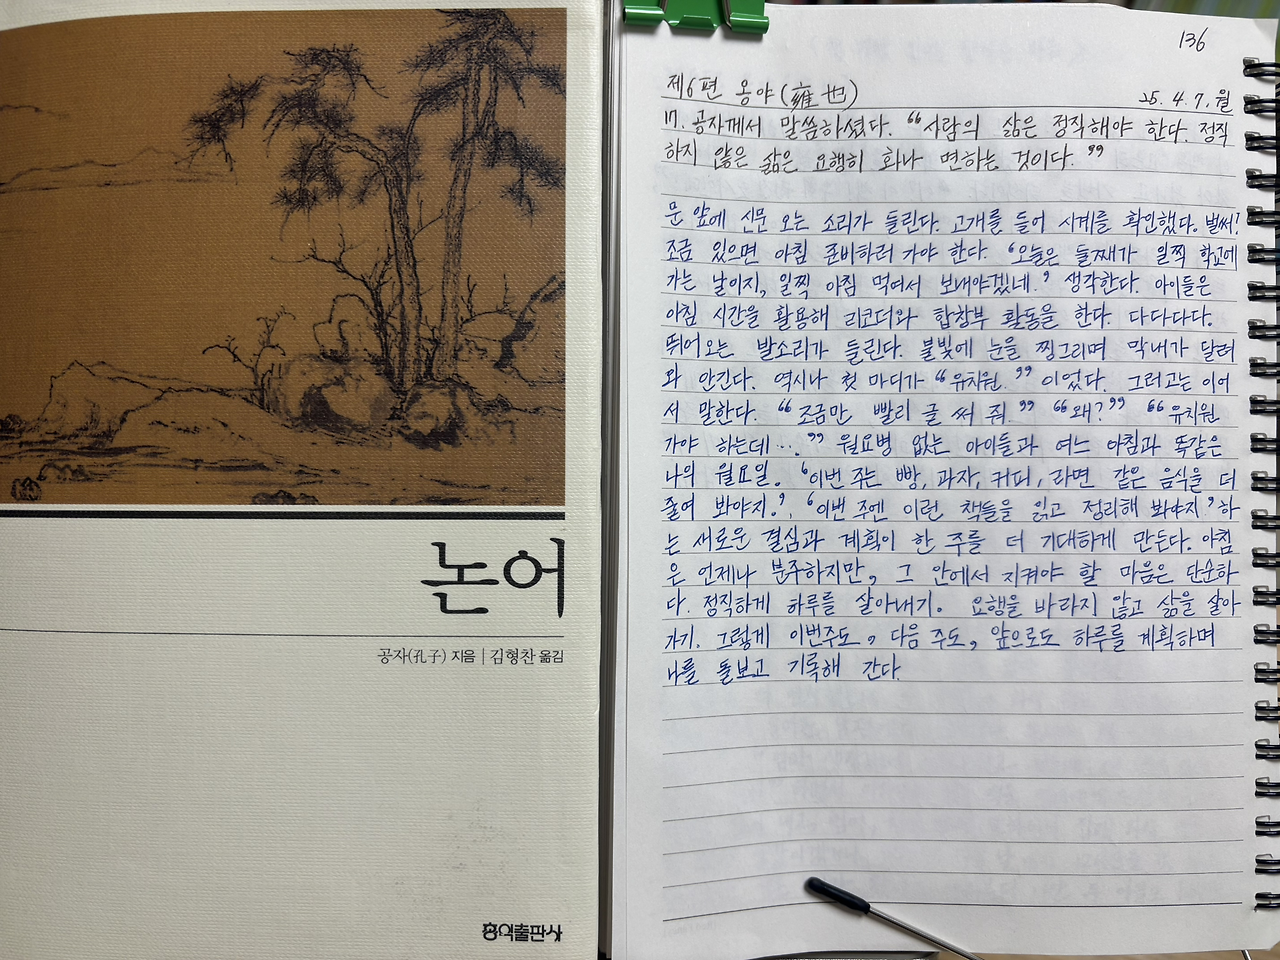 논어
공자(孔子) 지음 | 김형찬 옮김
홍익출판사
136
제6편 옹야(雍也)
25. 4. 7. 월
17. 공자께서 말씀하셨다. "사람의 삶은 정직해야 한다. 정직
하지 않은 삶은 요행히 화나 면하는 것이다."
문 앞에 신문 오는 소리가 들린다. 고개를 들어 시계를 확인했다. 벌써?
조금 있으면 아침 준비하러 가야 한다. '오늘은 둘째가 일찍 학교에
가는 날이지, 일찍 아침 먹여서 보내야겠네.' 생각한다. 아이들은
아침 시간을 활용해 리코더와 합창부 활동을 한다. 다다다다.
뛰어오는 발소리가 들린다. 불빛에 눈을 찡그리며 막내가 달려
와 안긴다. 역시나 첫 마디가 "유치원." 이었다. 그러고는 이어
서 말한다. "조금만 빨리 글 써 줘." "왜?" "유치원
가야 하는데…." 월요병 없는 아이들과 여느 아침과 똑같은
나의 월요일. '이번 주는 빵, 과자, 커피, 라면 같은 음식을 더
줄여 봐야지.', '이번 주엔 이런 책들을 읽고 정리해 봐야지.' 하
는 새로운 결심과 계획이 한 주를 더 기대하게 만든다. 아침
은 언제나 분주하지만, 그 안에서 지켜야 할 마음은 단순하
다. 정직하게 하루를 살아내기. 요행을 바라지 않고 삶을 살아
가기. 그렇게 이번주도, 다음 주도, 앞으로도 하루를 계획하며
나를 돌보고 기록해 간다.